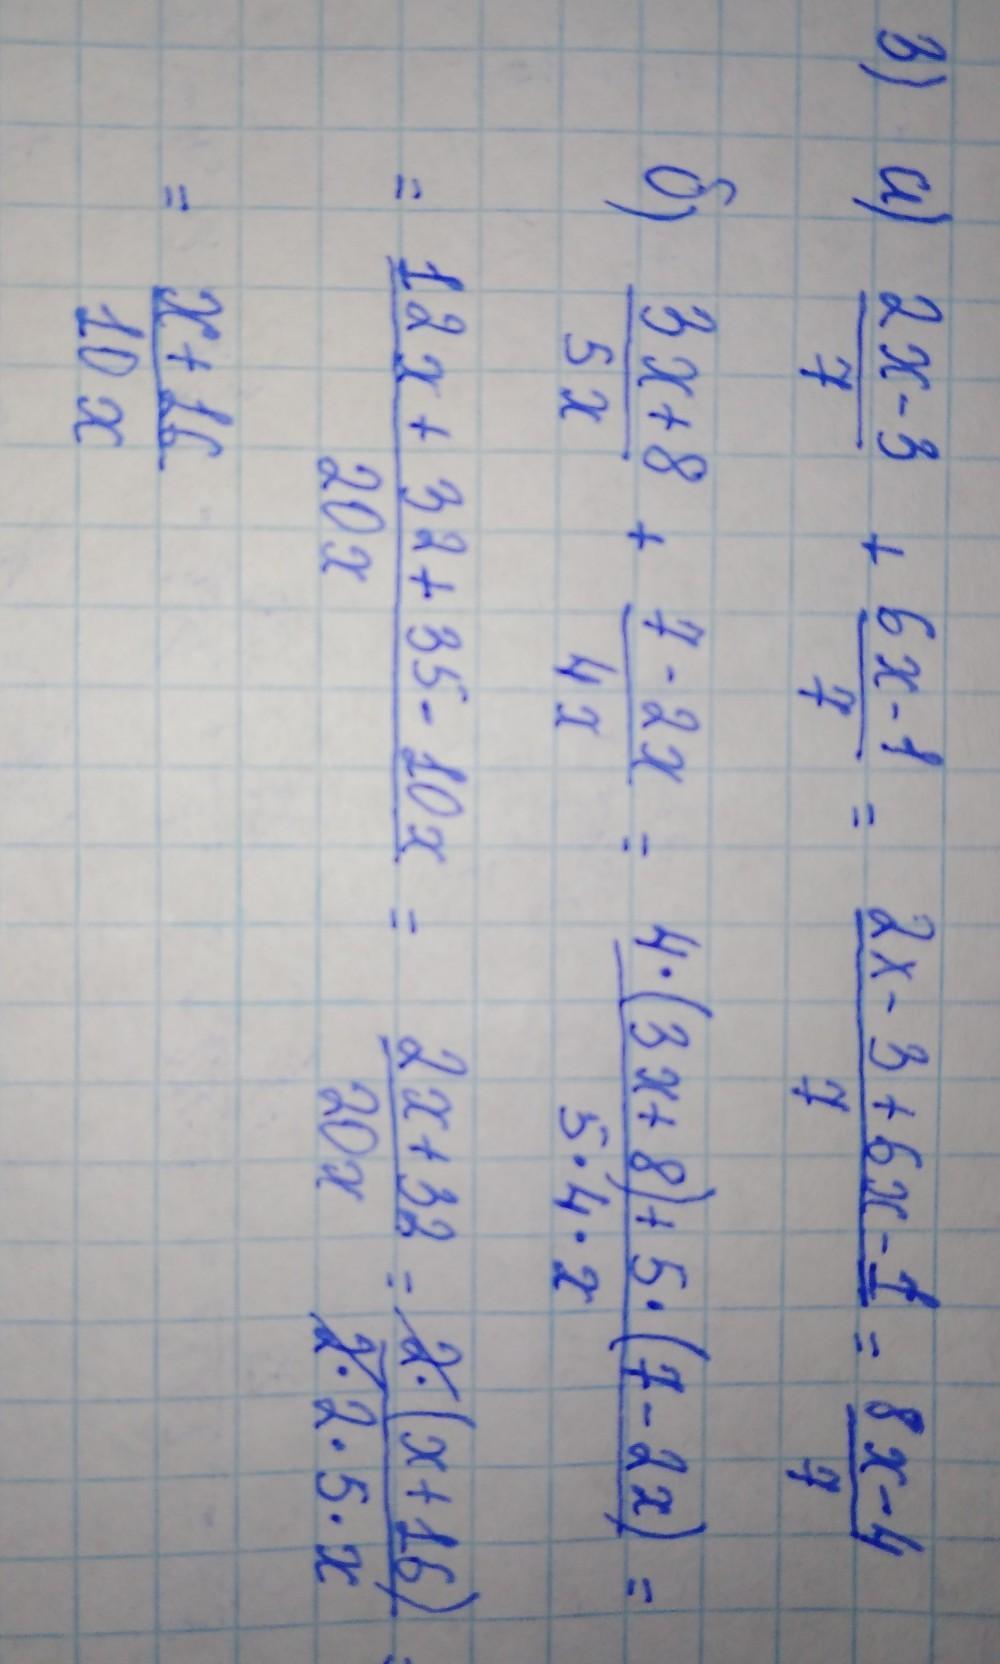 3) а) (2x-3)/7 + (6x-1)/7 = (2x-3+6x-1)/7 = (8x-4)/7
б) (3x+8)/(5x) + (7-2x)/(4x) = (4·(3x+8)+5·(7-2x))/(5·4·x) =
= (12x+32+35-10x)/(20x) = (2x+32)/(20x) = (2·(x+16))/(2·2·5·x) =
= (x+16)/(10x)